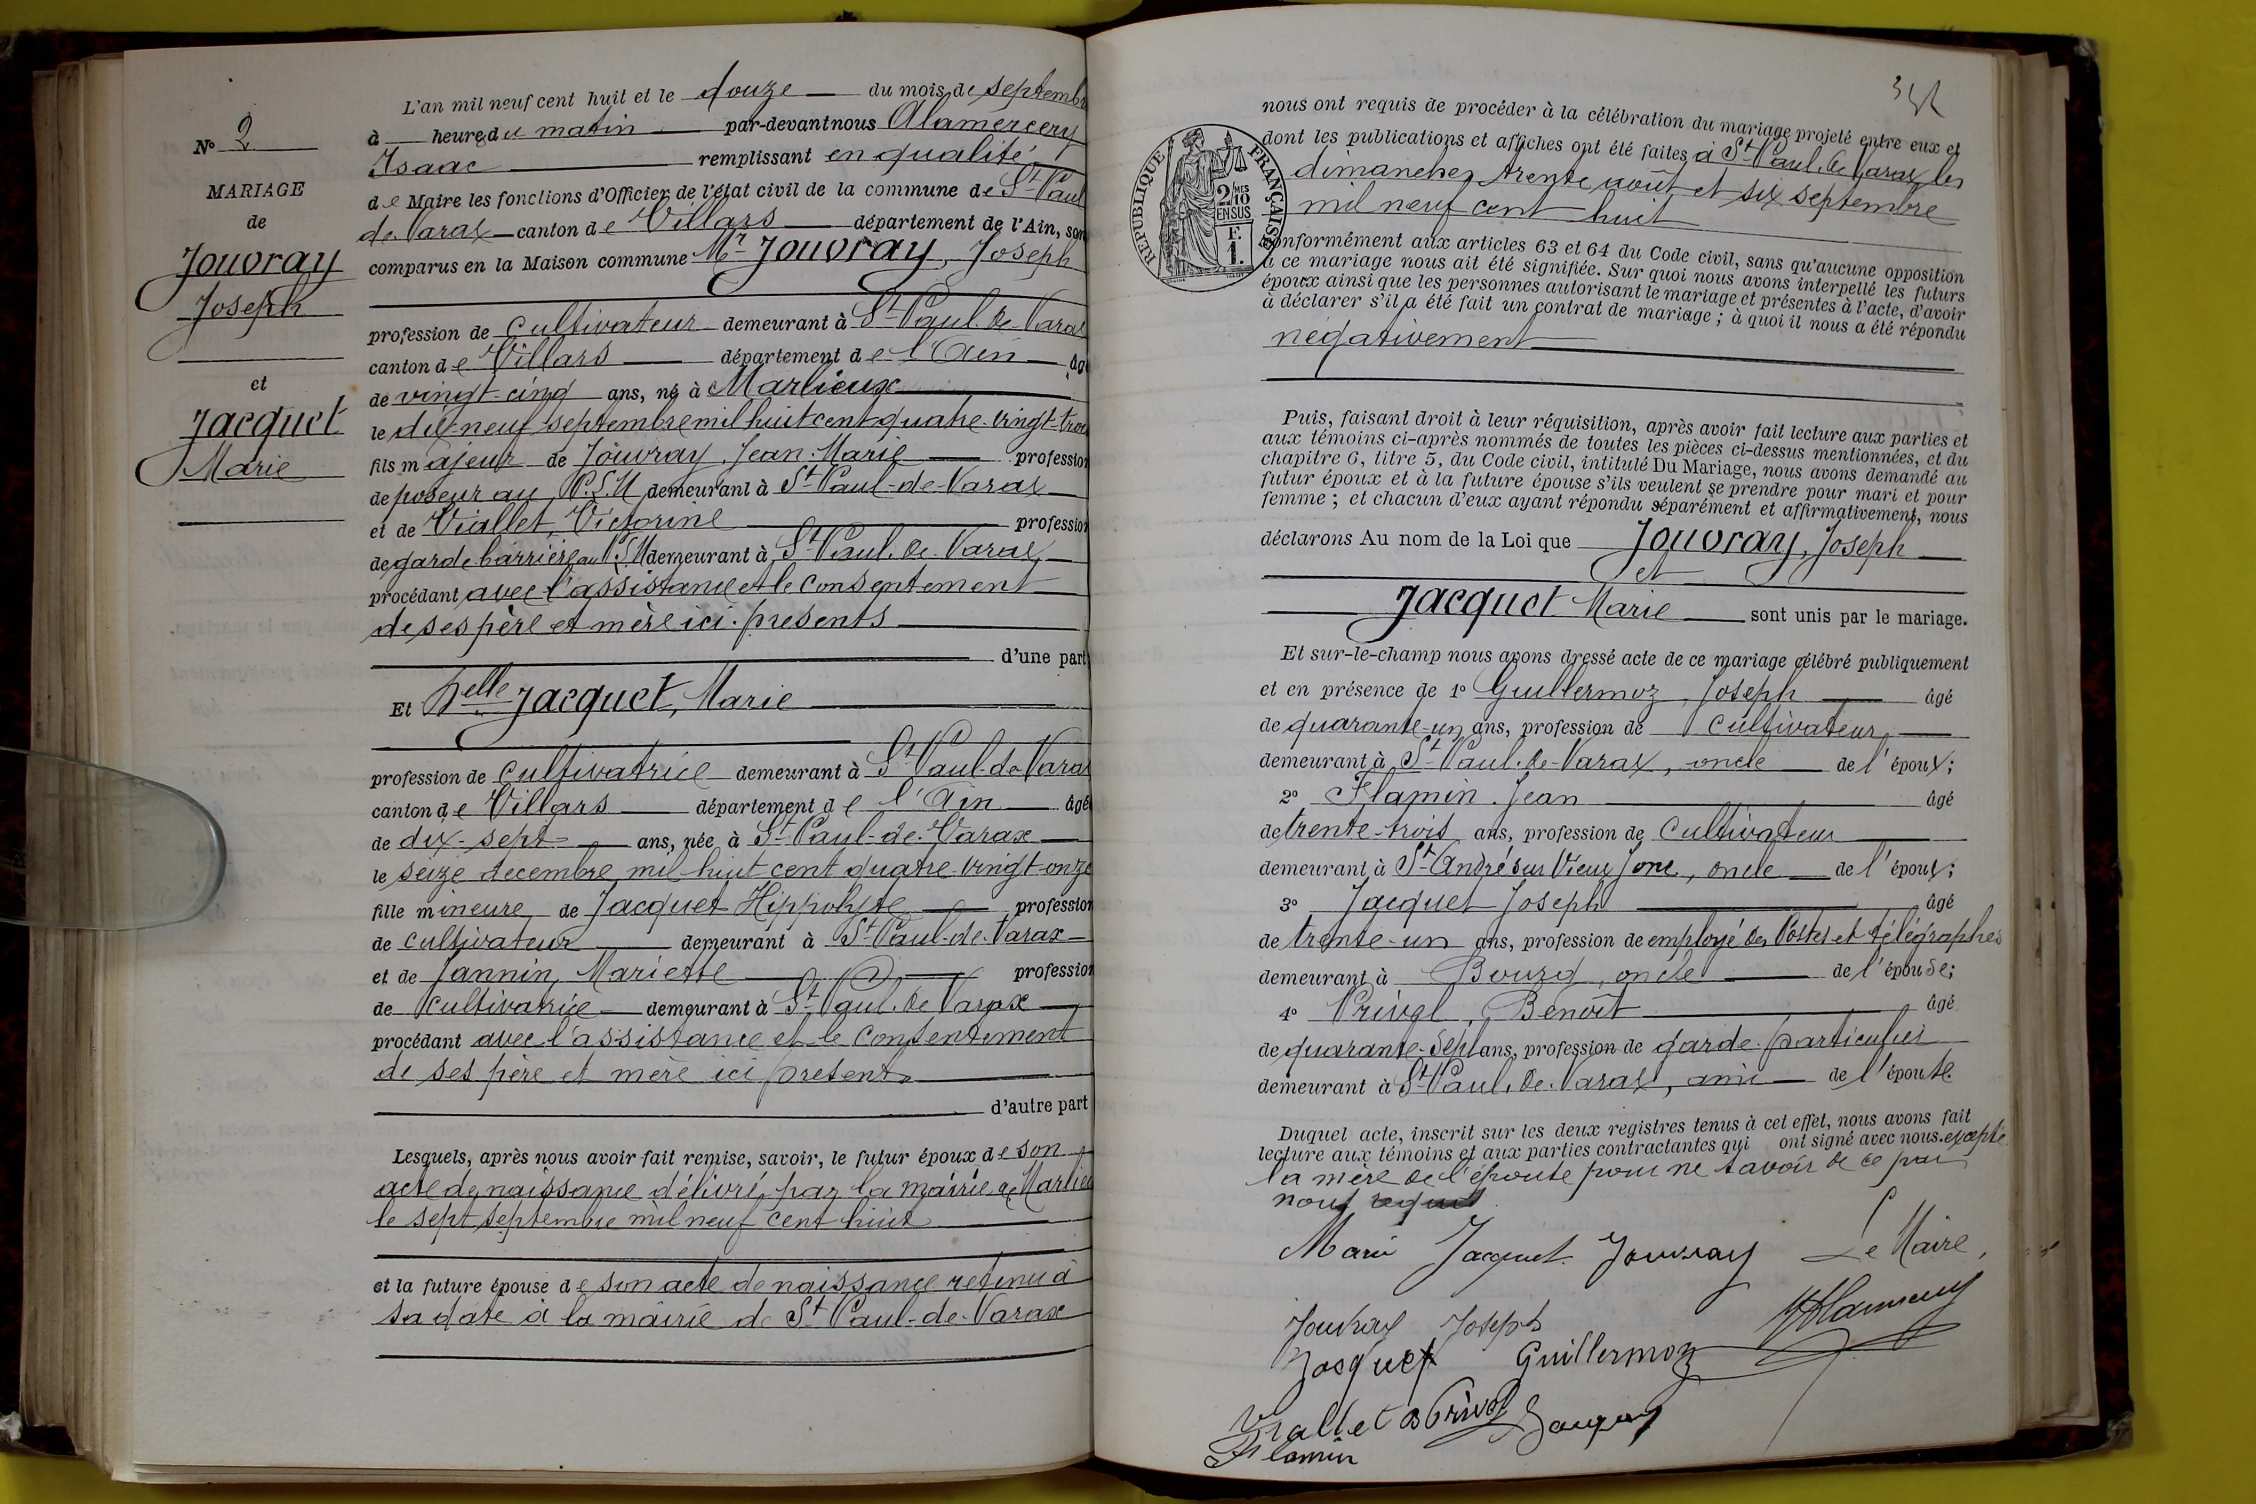 N° 2
MARIAGE
de
Jouvray
Joseph
et
Jacquet
Marie
L'an mil neuf cent huit et le douze du mois de septemb
à heure du matin par-devant nous Alamercery
Isaac remplissant en qualité
de Maire les fonctions d'Officier de l'état civil de la commune de St Paul
de Varax canton de Villars département de l'Ain, son
comparus en la Maison commune Mr Jouvray, Joseph
profession de cultivateur demeurant à St Paul de Varax
canton de Villars département de l'Ain âgé
de vingt-cinq ans, né à Marlieux
le dix-neuf septembre mil huit cent quatre-vingt-trois
fils majeur de Jouvray Jean-Marie profession
de poseur au P.L.M demeurant à St Paul-de-Varax
et de Viallet, Victorine profession
de garde barrière au P.L.M demeurant à St Paul de Varax
procédant avec l'assistance et le consentement
de ses père et mère ici présents
d'une part
Et Delle Jacquet, Marie
profession de cultivatrice demeurant à St Paul-de Varax
canton de Villars département de l'Ain âgé
de dix-sept ans, née à St Paul-de-Varax
le seize décembre mil huit cent quatre-vingt-onze
fille mineure de Jacquet Hippolyte profession
de cultivateur demeurant à St Paul-de-Varax
et de Jannin, Mariette profession
de cultivatrice demeurant à St Paul de Varax
procédant avec l'assistance et le consentement
de ses père et mère ici présents
d'autre part
Lesquels, après nous avoir fait remise, savoir, le futur époux de son
acte de naissance délivré par la mairie de Marlieu
le sept septembre mil neuf cent huit
et la future épouse de son acte de naissance retenu à
sa date à la mairie de St Paul-de-Varax
nous ont requis de procéder à la célébration du mariage projeté entre eux et
dont les publications et affiches ont été faites à St Paul de Varax les
dimanches trente août et six septembre
mil neuf cent huit
RÉPUBLIQUE FRANÇAISE
2/10 MES
EN SUS
F.
1.
conformément aux articles 63 et 64 du Code civil, sans qu'aucune opposition
à ce mariage nous ait été signifiée. Sur quoi nous avons interpellé les futurs
époux ainsi que les personnes autorisant le mariage et présentes à l'acte, d'avoir
à déclarer s'il a été fait un contrat de mariage ; à quoi il nous a été répondu
négativement
Puis, faisant droit à leur réquisition, après avoir fait lecture aux parties et
aux témoins ci-après nommés de toutes les pièces ci-dessus mentionnées, et du
chapitre 6, titre 5, du Code civil, intitulé Du Mariage, nous avons demandé au
futur époux et à la future épouse s'ils veulent se prendre pour mari et pour
femme ; et chacun d'eux ayant répondu séparément et affirmativement, nous
déclarons Au nom de la Loi que Jouvray, Joseph
et
Jacquet Marie sont unis par le mariage.
Et sur-le-champ nous avons dressé acte de ce mariage célébré publiquement
et en présence de 1° Guillermoz, Joseph âgé
de quarante-un ans, profession de cultivateur,
demeurant à St Paul-de-Varax, oncle de l'époux ;
2° Flamin Jean âgé
de trente-trois ans, profession de cultivateur
demeurant à St André sur Vieux Jonc, oncle de l'époux ;
3° Jacquet Joseph âgé
de trente-un ans, profession de employé des Postes et télégraphes
demeurant à Bourg, oncle de l'épouse ;
4° Privel, Benoît âgé
de quarante-sept ans, profession de garde-particulier
demeurant à St Paul, de Varax, ami de l'épouse.
Duquel acte, inscrit sur les deux registres tenus à cet effet, nous avons fait
lecture aux témoins et aux parties contractantes qui ont signé avec nous. excepté
la mère de l'épouse pour ne savoir de ce par
nous requis
Marie Jacquet Jouvray Le Maire,
Jouvray Joseph
Jacquet Guillermoz
Viallet B Privel Jacquet
Flamin